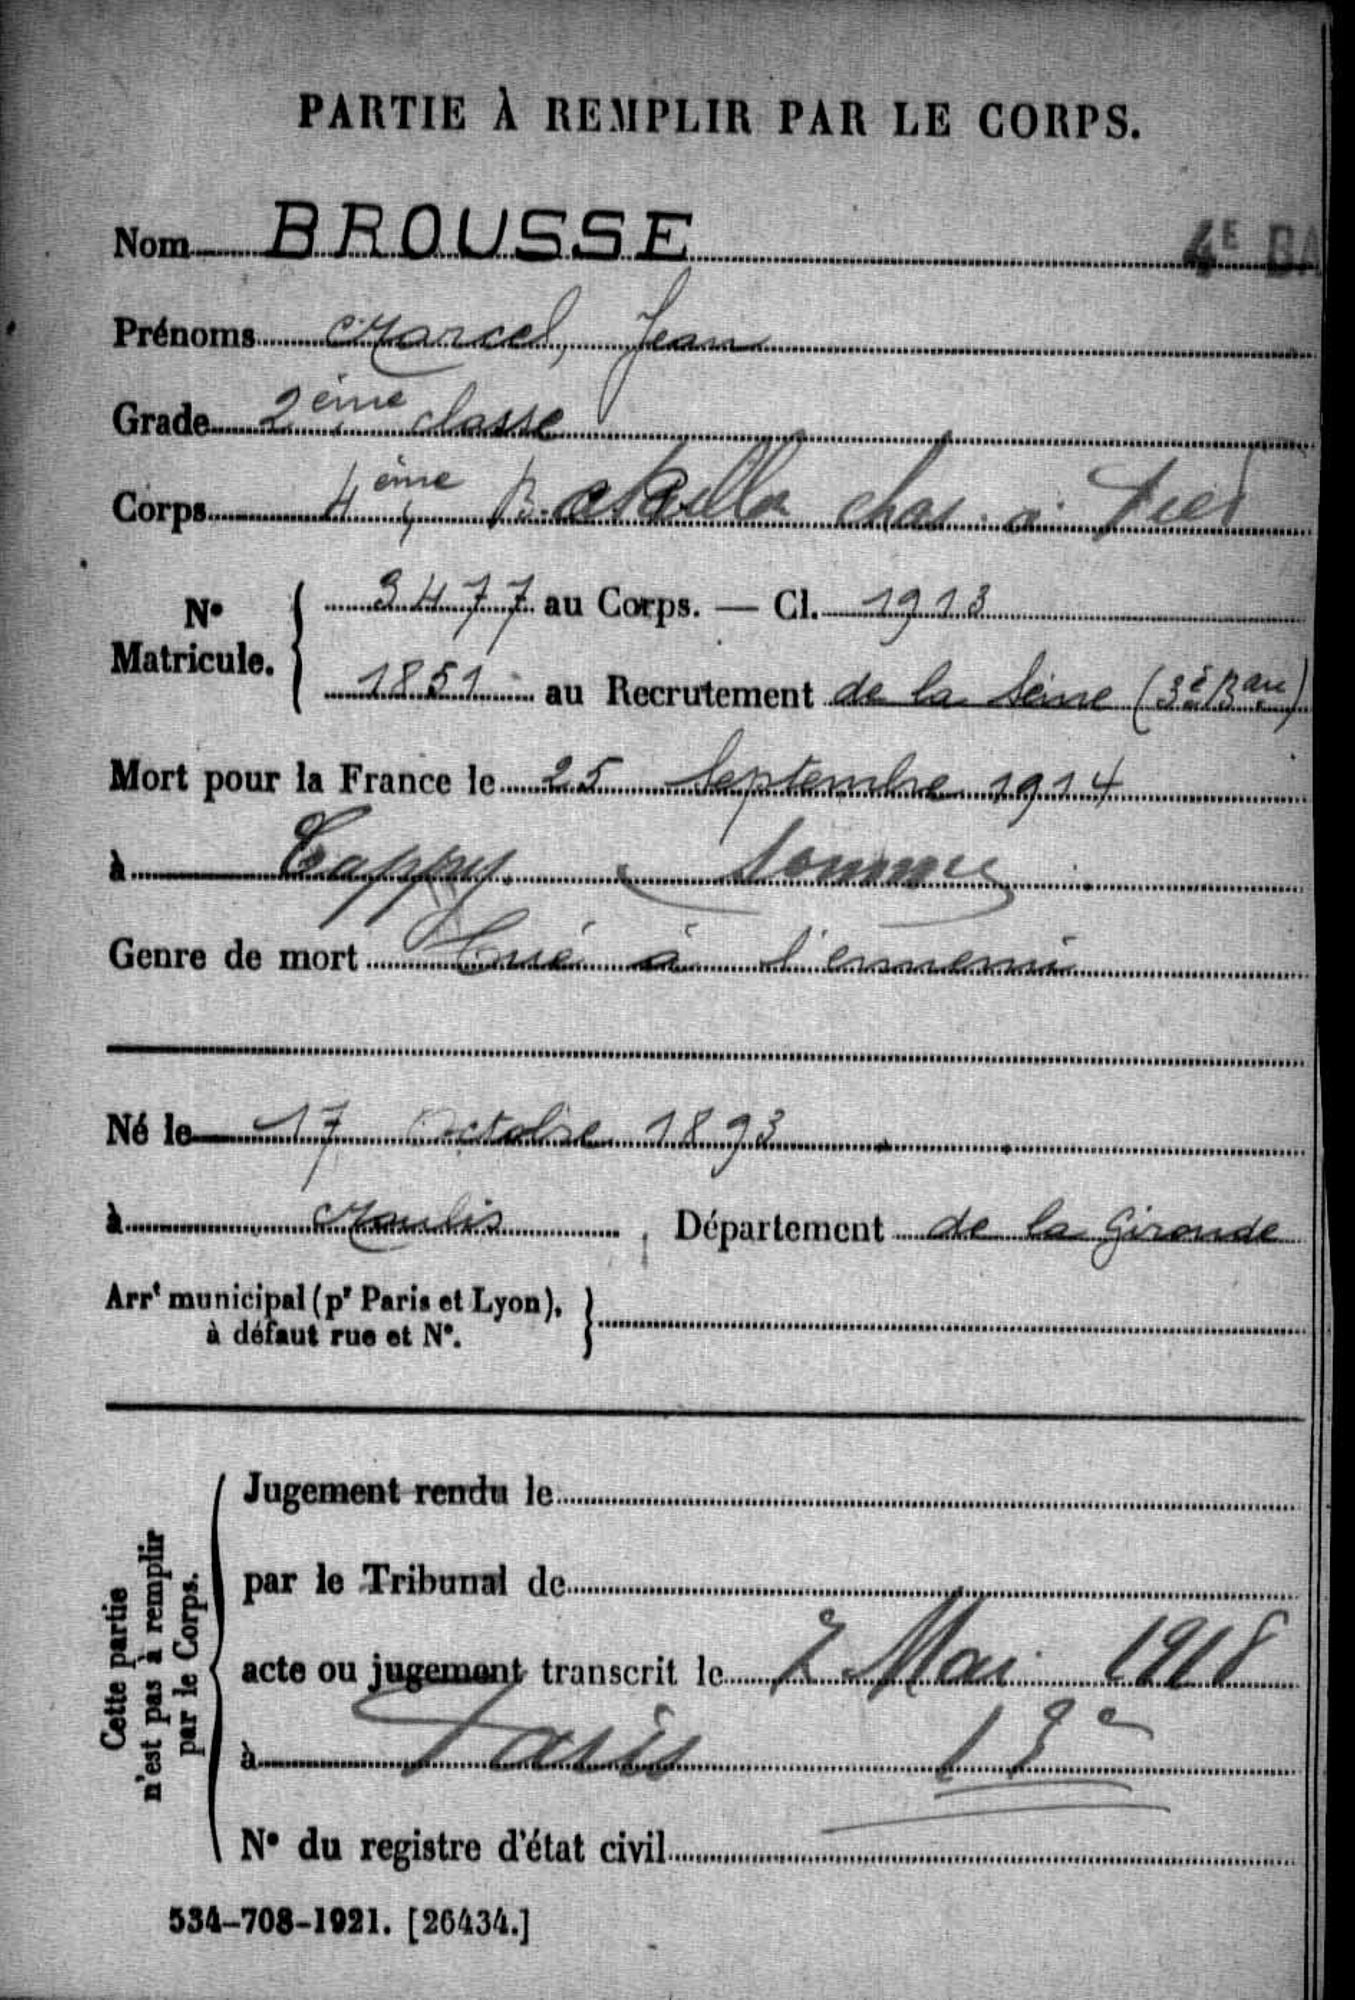 PARTIE À REMPLIR PAR LE CORPS.
Nom BROUSSE
4E BA
Prénoms Marcel, Jean
Grade 2ème classe
Corps 4ème Bataillon chas. à Pied
N° Matricule. { 3477 au Corps. — Cl. 1913
1851 au Recrutement de la Seine (3e Bau)
Mort pour la France le 25 Septembre 1914
à Cappy. Somme
Genre de mort Tué à l'ennemi
Né le 17 Octobre 1893
à Moulis Département de la Gironde
Arrt municipal (pr Paris et Lyon), }
à défaut rue et N°.
Cette partie
n'est pas à remplir
par le Corps.
Jugement rendu le
par le Tribunal de
acte ou jugement transcrit le 7 Mai 1918
à Paris 13e
N° du registre d'état civil
534-708-1921. [26434.]